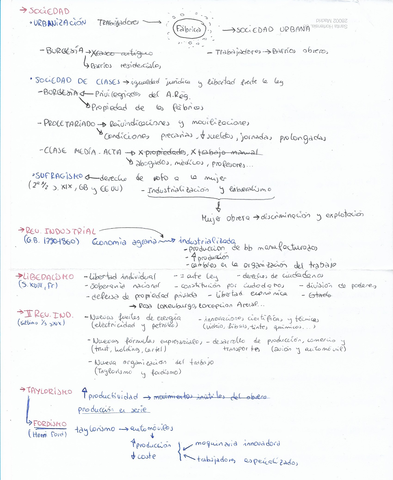 → SOCIEDAD
• URBANIZACIÓN Trabajadores
Fábrica → SOCIEDAD URBANA
- BURGESÍA → antiguo
→ Barrios residenciales
- Trabajadores → Barrios obreros
• SOCIEDAD DE CLASES → igualdad jurídica y libertad frente la ley
- BURGESÍA → Privilegiados del A.Rég.
→ Propiedad de las fábricas
- PROLETARIADO → Reivindicaciones y movilizaciones
→ Condiciones precarias, ↓ sueldos, jornadas prolongadas
- CLASE MEDIA-ALTA → X propiedades, X trabajo manual
→ abogados, médicos, profesores...
• SUFRAGISMO → derecho de voto a la mujer
(2ª ½ s. XIX, GB y EEUU)
Industrialización y liberalismo
Mujer obrera → discriminación y explotación
→ REV. INDUSTRIAL
(G.B. 1780-1860) Economía agraria → industrializada
- producción de bb manufacturados
- ↑ producción
- cambios en la organización del trabajo
→ LIBERALISMO - Libertad individual - = ante Ley - derechos de ciudadanía
(S. XVIII, Fr.) - soberanía nacional - constitución por ciudadanos - división de poderes
- defensa de propiedad privada - libertad económica - Estado
→ II REV. IND. - Nuevas fuentes de energía - innovaciones científicas y técnicas
(electricidad y petróleo)
- Nuevas fórmulas empresariales - desarrollo de producción, comercio y
(trust, holding, cartel) transportes (avión y automóvil)
- Nueva organización del trabajo
(Taylorismo y fordismo)
→ TAYLORISMO ↑ productividad → movimientos inútiles del obrero
producción en serie
→ FORDISMO taylorismo → automóviles
(Henri Ford) ↑ producción → maquinaria innovadora
↓ coste → trabajadores especializados